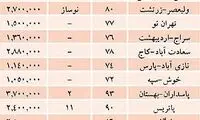 ولیعصر-زرتشت ۸۰ نوساز ۲,۷۰۰,۰۰۰
تهران نو ۷۷ - ۱,۰۵۰,۰۰۰
سراج-اردیبهشت ۷۶ - ۱,۳۶۰,۰۰۰
سعادت آباد-کاج ۷۸ - ۲,۸۰۰,۰۰۰
نازی آباد-پارس ۷۴ - ۱,۱۴۰,۰۰۰
خوش-سپه ۷۲ - ۱,۰۵۰,۰۰۰
پاسداران-بهستان ۹۳ ۲ ۳,۷۰۰,۰۰۰
پاتریس ۹۰ ۱۱ ۲,۴۰۰,۰۰۰